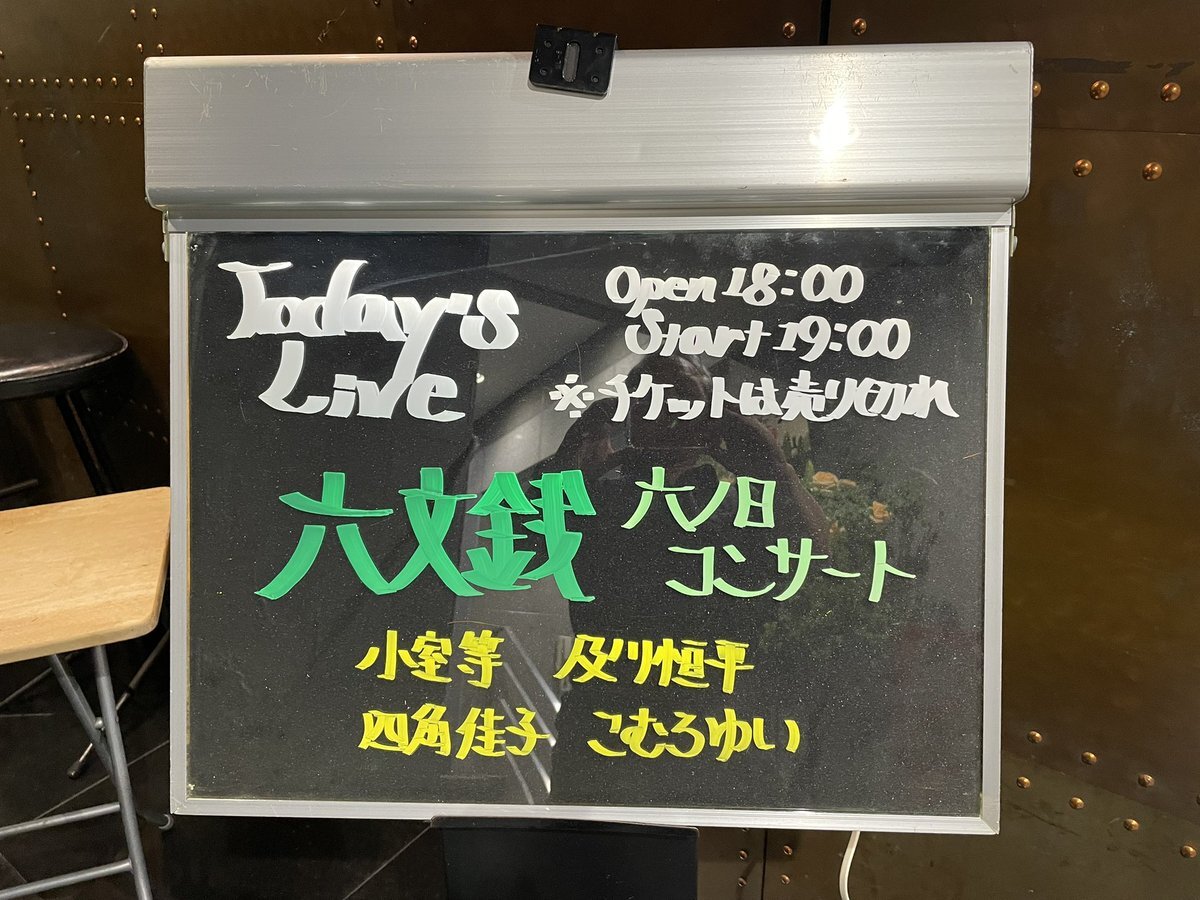 Today's
Live
Open 18:00
Start 19:00
※チケットは売り切れ
六文銭
六ノ日
コンサート
小室等 及川恒平
四角佳子 こむろゆい